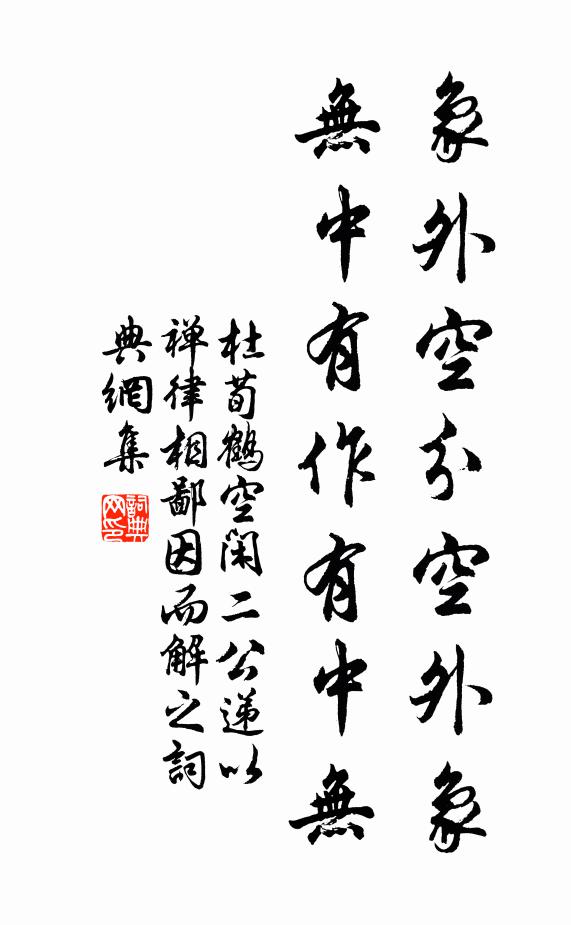 象外空分空外象
無中有作有中無
杜荀鶴空閑二公遞以
禅律相鄙因而解之詞
典網集
詞典
网印